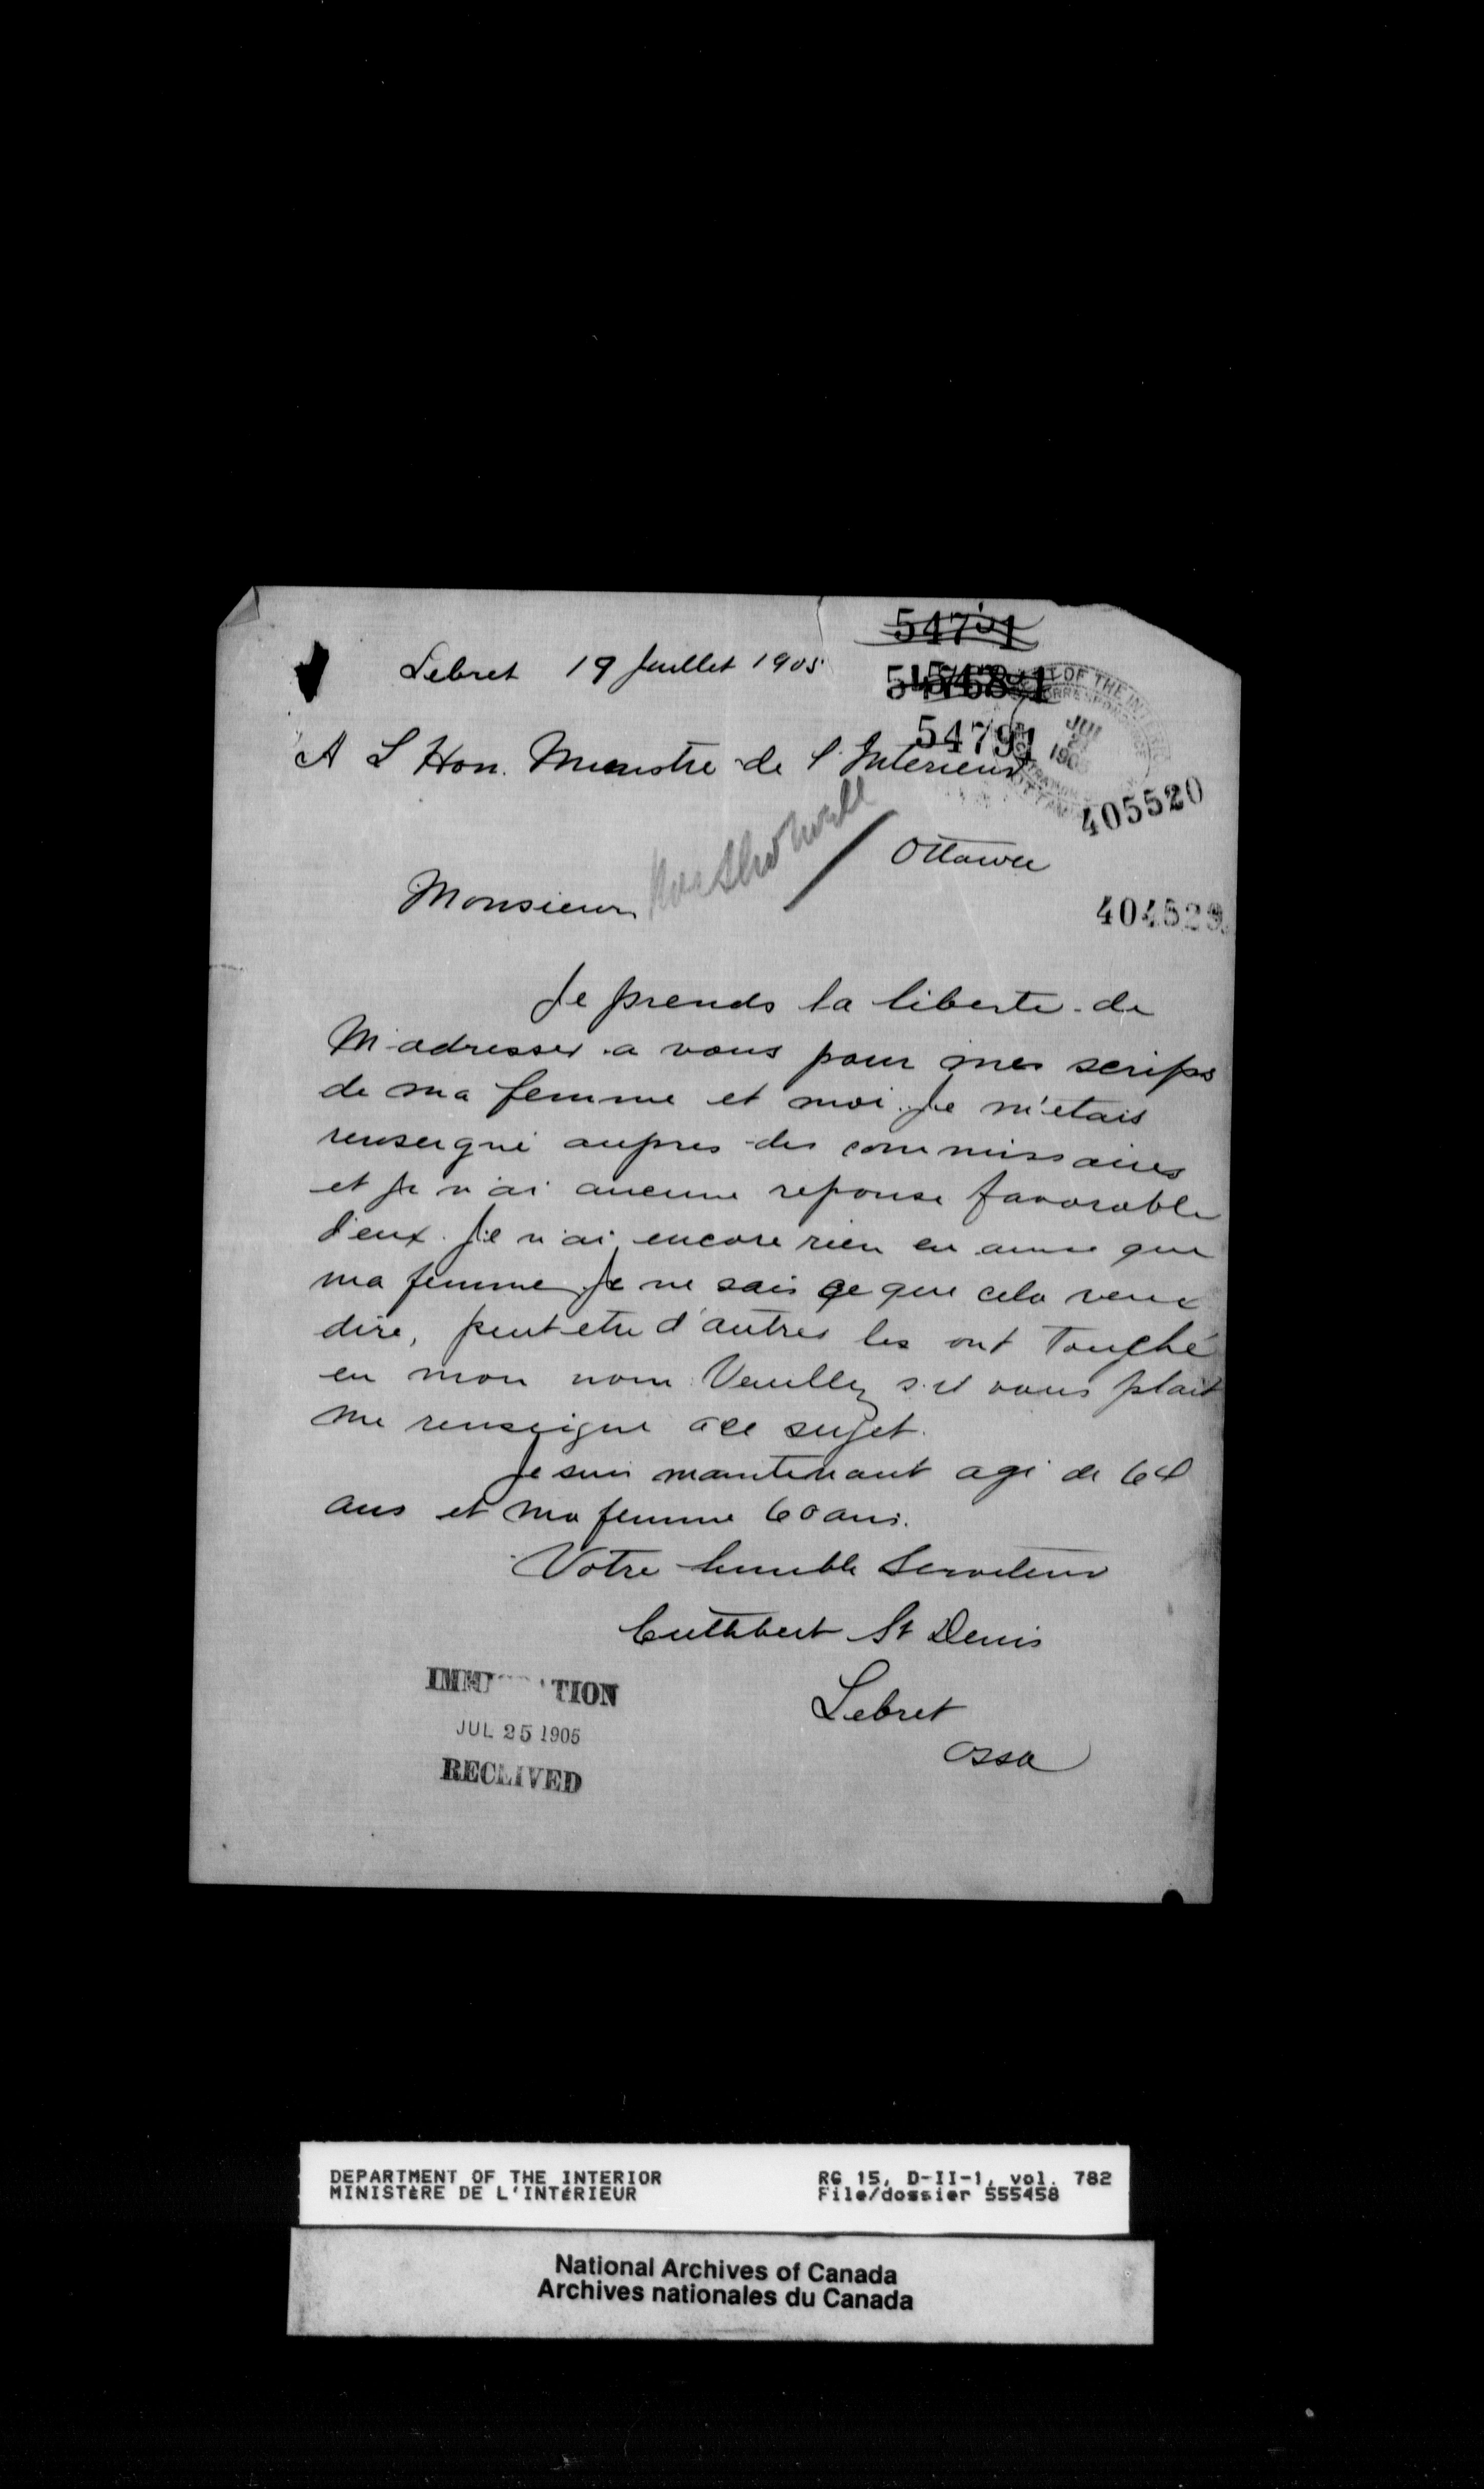 54791
Lebret 19 Juillet 1905
54791
A L Hon. Ministre de l'Interieur
405520
Ottawa
Monsieur
404529
Je prends la liberte de
M'adresser a vous pour mes scrips
de ma femme et moi. Je m'etais
renseigné aupres des commissaires
et je n'ai aucune reponse favorable
d'eux. Je n'ai encore rien eu ainsi que
ma femme Je ne sais ce que cela veux
dire, peut etre d'autres les ont Touché
en mon nom. Veuillez s.il vous plait
me renseigne a ce sujet.
Je suis maintenant agé de 64
ans et ma femme 60 ans.
Votre humble Serviteur
Cuthbert St Denis
Lebret
Assa
JUL 25 1905
RECEIVED
DEPARTMENT OF THE INTERIOR
MINISTèRE DE L'INTéRIEUR
RG 15, D-II-1, vol. 782
File/dossier 555458
National Archives of Canada
Archives nationales du Canada